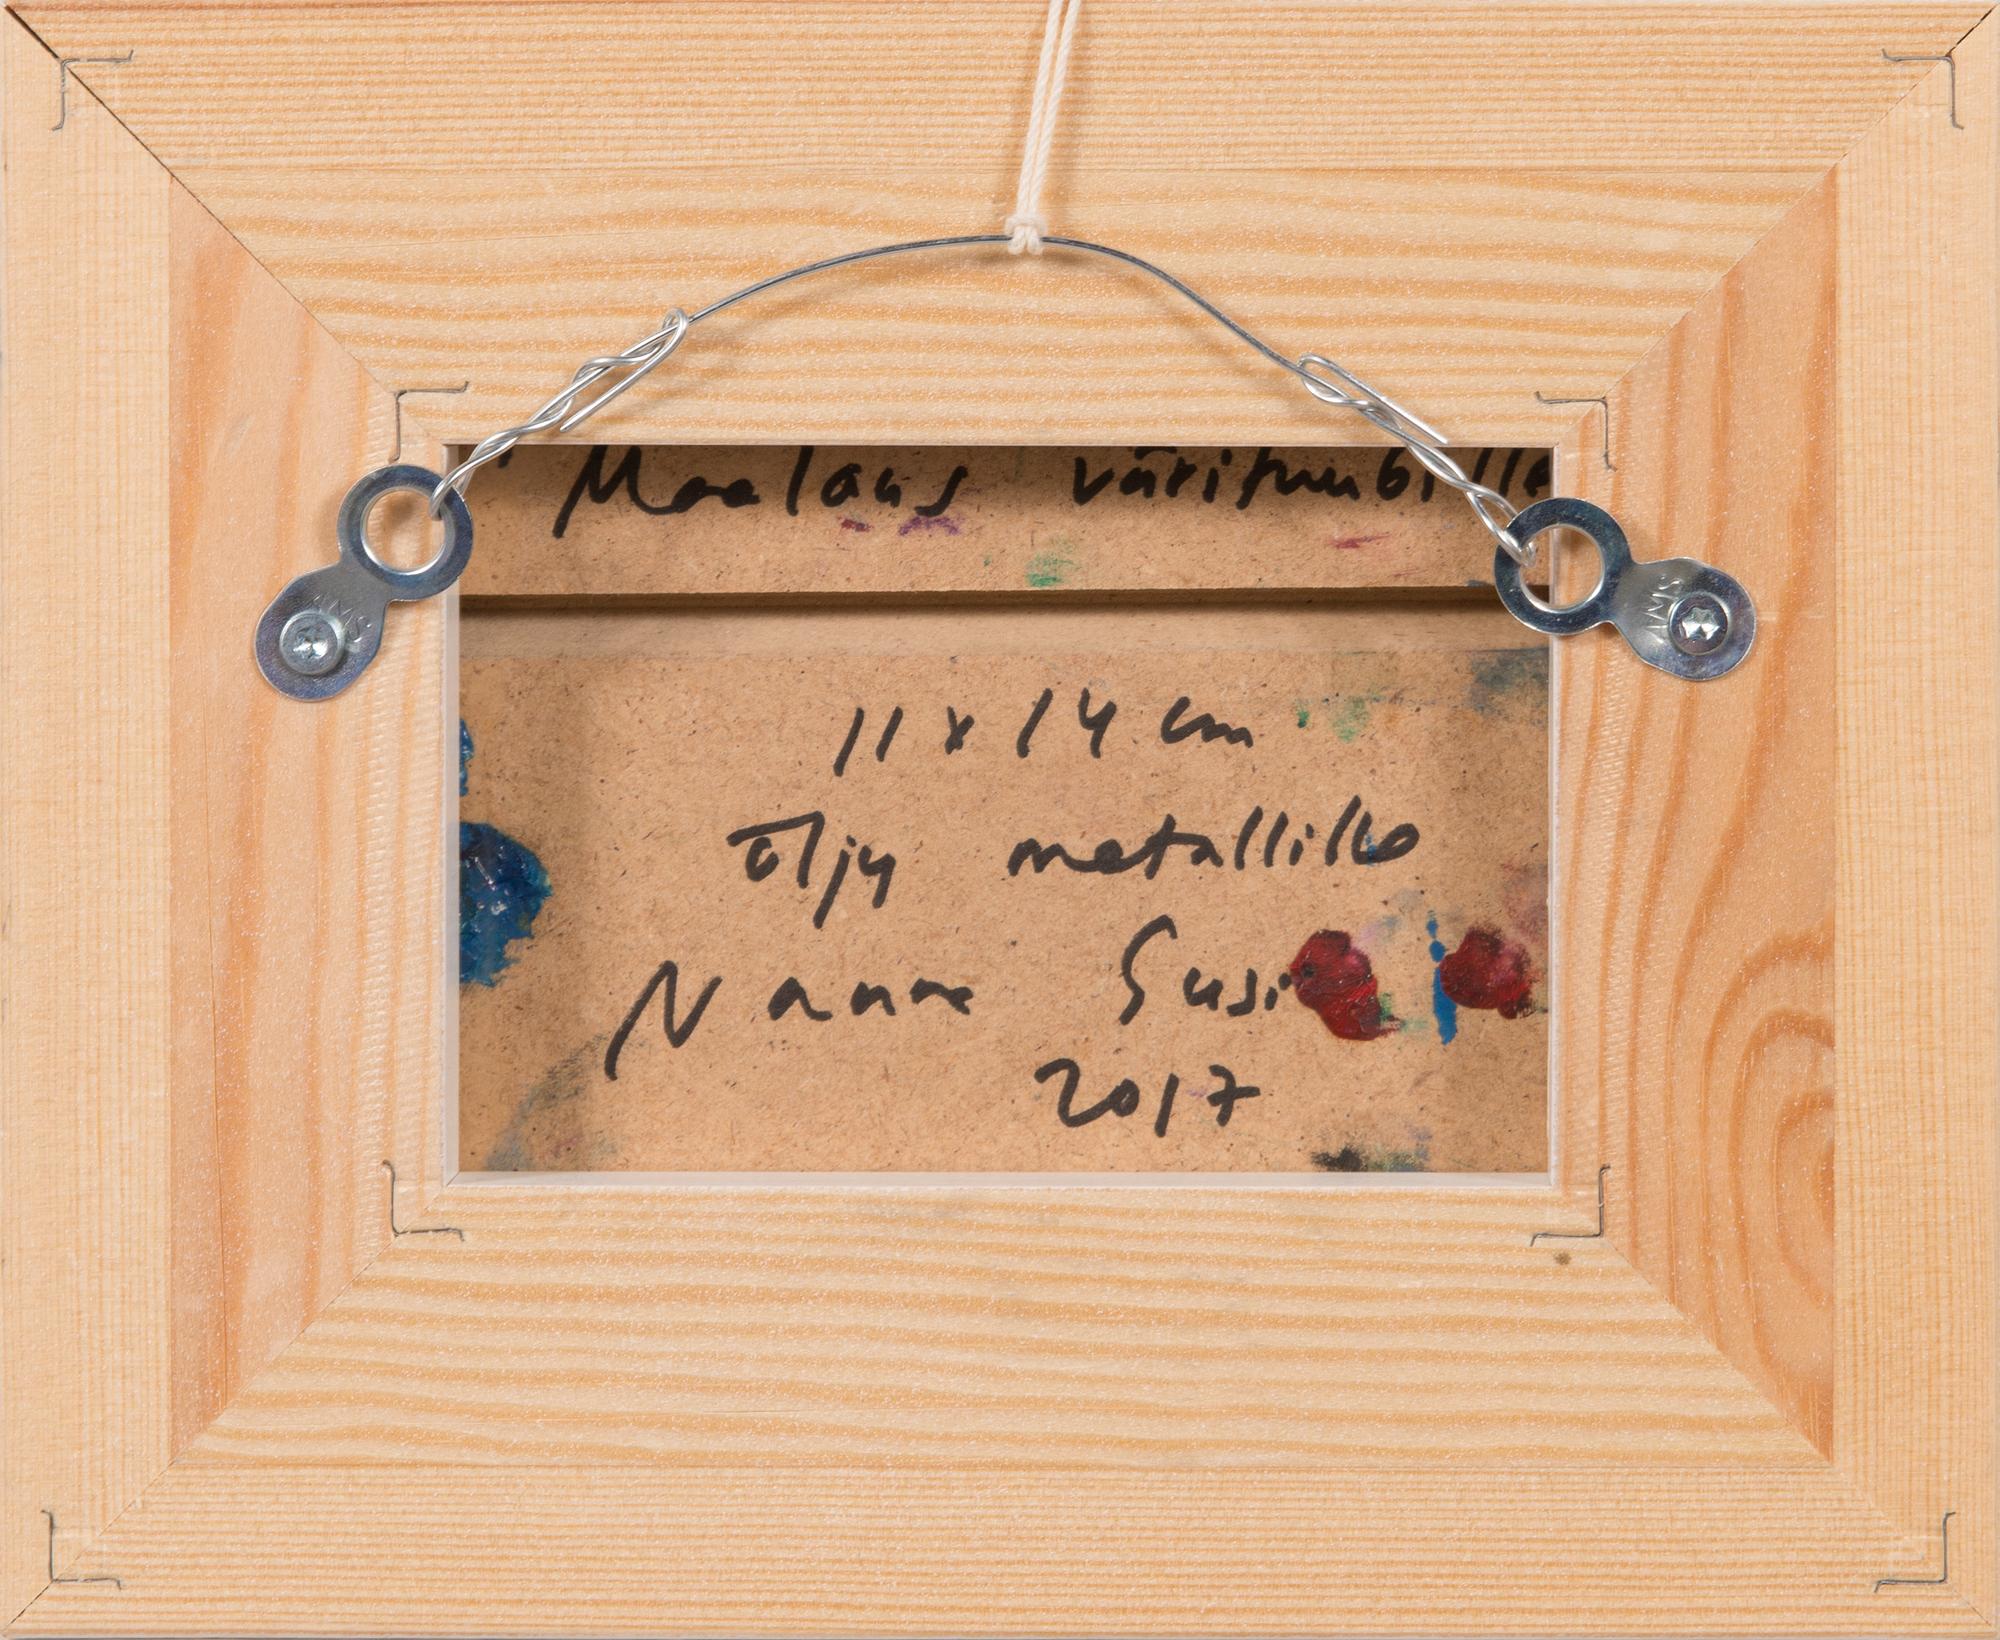 " Maalaus värituubille
11 x 14 cm
öljy metallille
Nanna Susi
2017
AMS
AMS